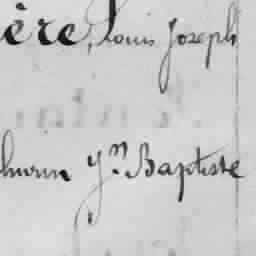 ère, Louis Joseph
hurin Jn Baptiste